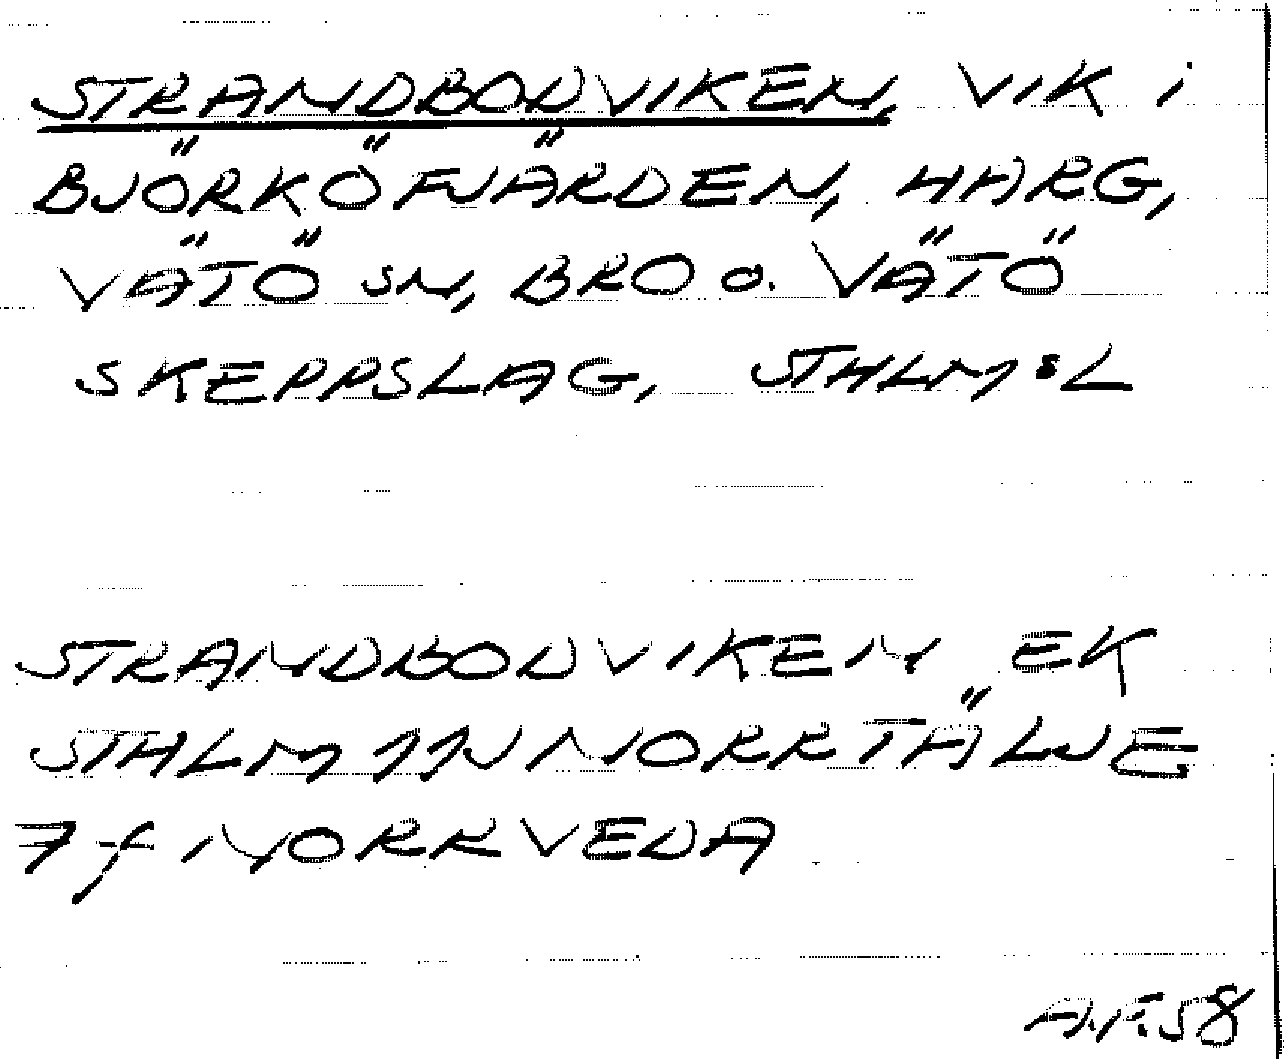 STRANDBODVIKEN, VIK i
BJÖRKÖFJÄRDEN, HARG,
VÄTÖ SN, BRO o. VÄTÖ
SKEPPSLAG, STHLM:S L
STRANDBODVIKEN EK
STHLM 11J NORRTÄLJE
7 f NORRVEDA